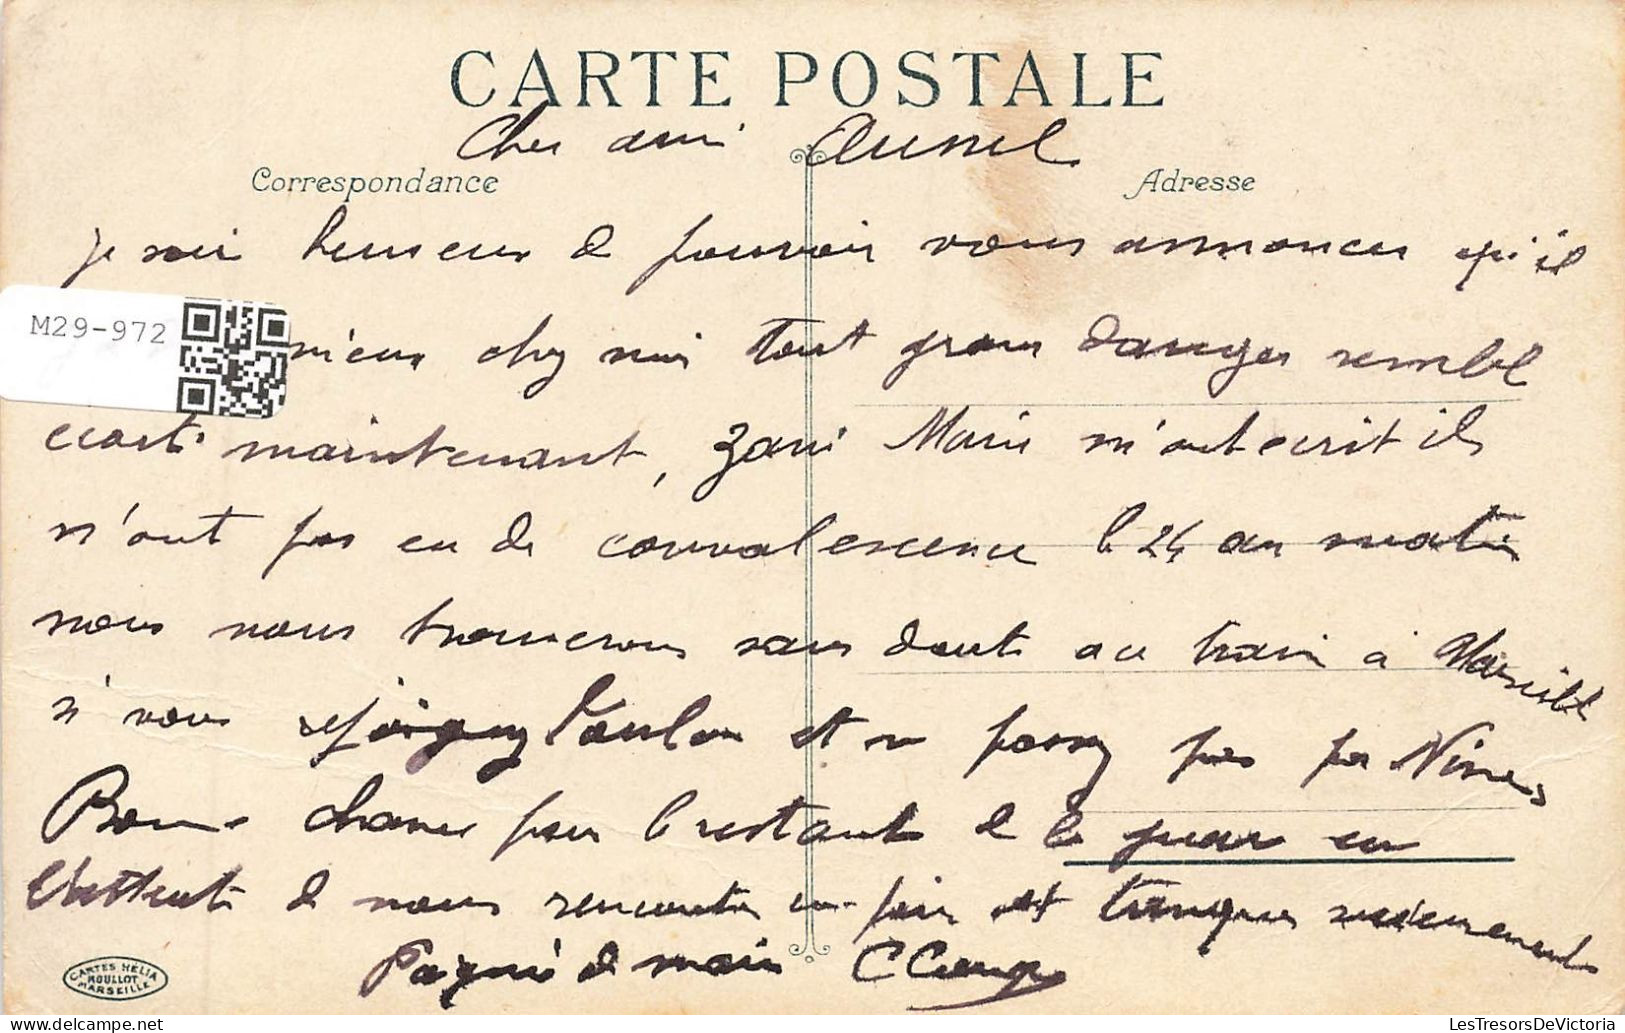 CARTE POSTALE
Cher ami
Correspondance
Adresse
je suis heureux de pouvoir vous annoncer qu'il
M29-972
mieux chez moi tout gran danger semble
ecarté maintenant, Marie m'ont ecrit ils
n'ont pas eu de convalescence le 24 au matin
nous nous trouverons sans doute au train à Marseille
si vous rejoignez Toulon et ne passez pas par Nimes
Bonne chance pour le restant de la guerre en
l'attente de nous rencontrer en paix et
Pognié de main
CARTES HELIA
MOULLOT
MARSEILLE
LesTresorsDeVictoria